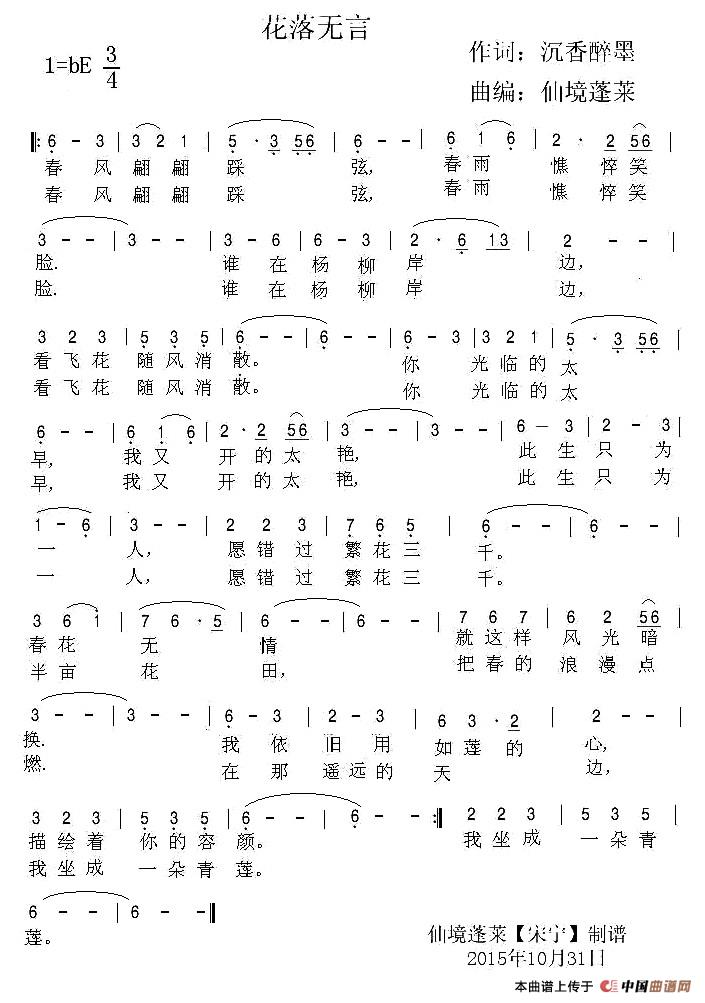 花落无言
作词：沉香醉墨
1=bE 3/4
曲编：仙境蓬莱
‖: 6 - 3 | 3 2 1 | 5 · 3 56 | 6 - - | 6 1 6 | 2 · 2 56 |
春 风 翩 翩 踩 弦, 春 雨 憔 悴 笑
春 风 翩 翩 踩 弦, 春 雨 憔 悴 笑
3 - - | 3 - - | 3 - 6 | 6 - 3 | 2 · 6 13 | 2 - - |
脸. 谁 在 杨 柳 岸 边,
脸. 谁 在 杨 柳 岸 边,
3 2 3 | 5 3 5 | 6 - - | 6 - - | 6 - 3 | 3 2 1 | 5 · 3 56 |
看 飞 花 随 风 消 散。 你 光 临 的 太
看 飞 花 随 风 消 散。 你 光 临 的 太
6 - - | 6 1 6 | 2 · 2 56 | 3 - - | 3 - - | 6 - 3 | 2 - 3 |
早, 我 又 开 的 太 艳, 此 生 只 为
早, 我 又 开 的 太 艳, 此 生 只 为
1 - 6 | 3 - - | 2 2 3 | 7 6 5 | 6 - - | 6 - - |
一 人, 愿 错 过 繁 花 三 千。
一 人, 愿 错 过 繁 花 三 千。
3 6 1 | 7 6 · 5 | 6 - - | 6 - - | 7 6 7 | 6 2 56 |
春 花 无 情 就 这 样 风 光 暗
半 亩 花 田, 把 春 的 浪 漫 点
3 - - | 3 - - | 6 - 3 | 2 - 3 | 6 3 · 2 | 2 - - |
换. 我 依 旧 用 如 莲 的 心,
燃. 在 那 遥 远 的 天 边,
3 2 3 | 5 3 5 | 6 - - | 6 - - :‖ 3 2 3 | 5 3 5 |
描 绘 着 你 的 容 颜。 我 坐 成 一 朵 青
我 坐 成 一 朵 青 莲。
6 - - | 6 - - ‖
莲。
仙境蓬莱【宋宁】制谱
2015年10月31日
本曲谱上传于 中国曲谱网